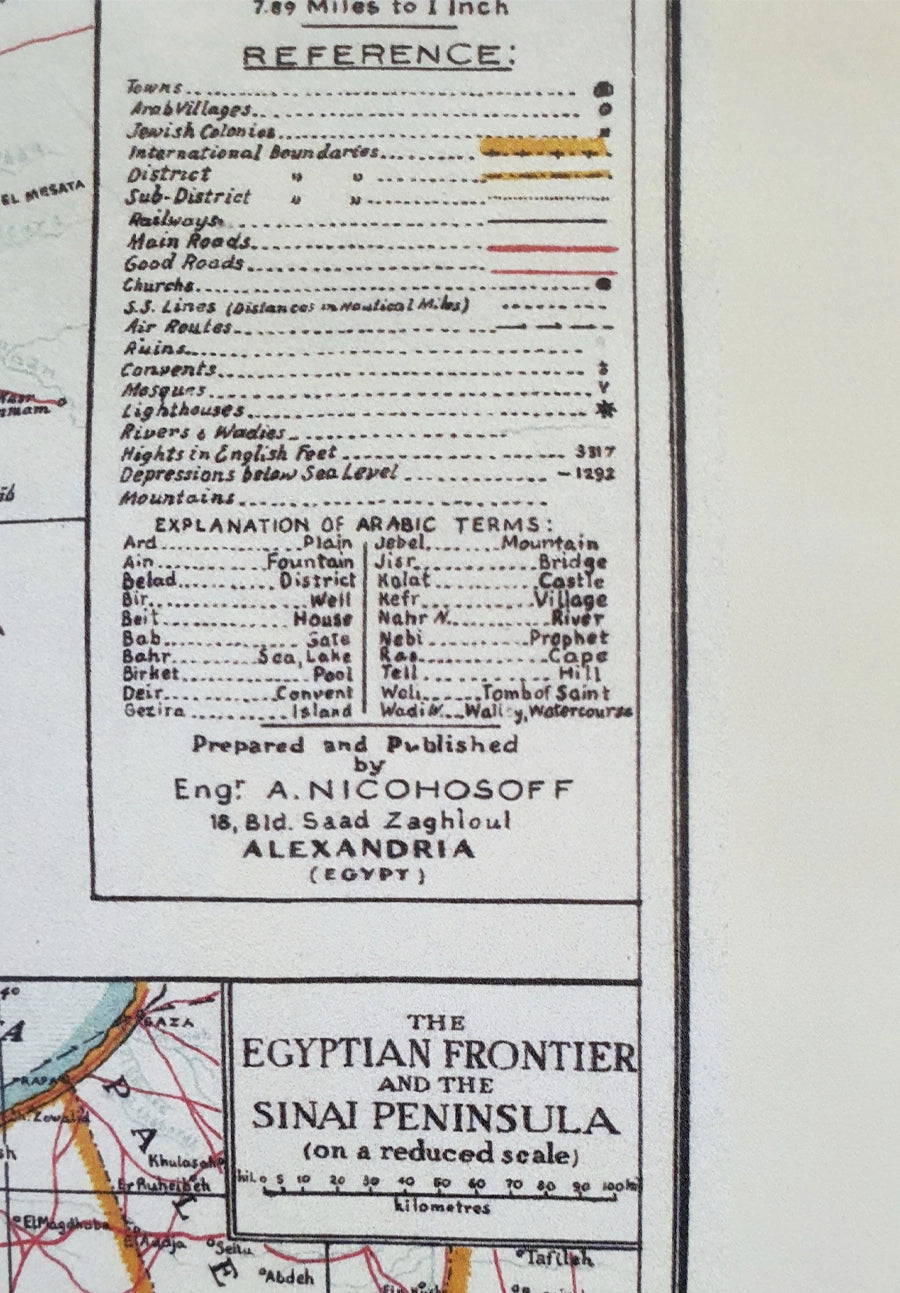 7.89 Miles to 1 Inch
REFERENCE:
Towns
Arab Villages
Jewish Colonies
International Boundaries
District " "
Sub-District " "
Railways
Main Roads
Good Roads
Churchs
S.S. Lines (Distances in Nautical Miles)
Air Routes
Ruins
Convents
Mosques
Lighthouses
Rivers & Wadies
Hights in English Feet 3317
Depressions below Sea Level -1292
Mountains
EXPLANATION OF ARABIC TERMS:
Ard Plain Jebel Mountain
Ain Fountain Jisr Bridge
Belad District Kalat Castle
Bir Well Kefr Village
Beit House Nahr N. River
Bab Gate Nebi Prophet
Bahr Sea, Lake Ras Cape
Birket Pool Tell Hill
Deir Convent Weli Tomb of Saint
Gezira Island Wadi W. Valley, Watercourse
Prepared and Published
by
Engr. A. NICOHOSOFF
18, Bld. Saad Zaghloul
ALEXANDRIA
(EGYPT)
EL MESATA
THE
EGYPTIAN FRONTIER
AND THE
SINAI PENINSULA
(on a reduced scale)
kil. 0 5 10 20 30 40 50 60 70 80 90 100 kil
kilometres
GAZA
RAFA
P
A
L
E
Sh. Zowaiid
Khulasah
Er Ruheibeh
El Magdhaba
El Audja
Abdeh
Tafileh